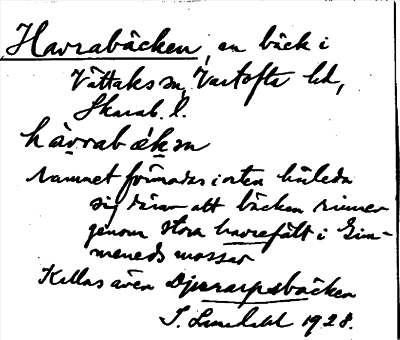 Havrabäcken, en bäck i
Vättaks sn, Vartofta hd,
Skarab. l.
hàvrabǽkən
Namnet förmodas i orten härleda
sig därav att bäcken rinner
genom stora havrefält i Gim-
meneds mossar
Kallas även Djurarpsbäcken
S. 1928.